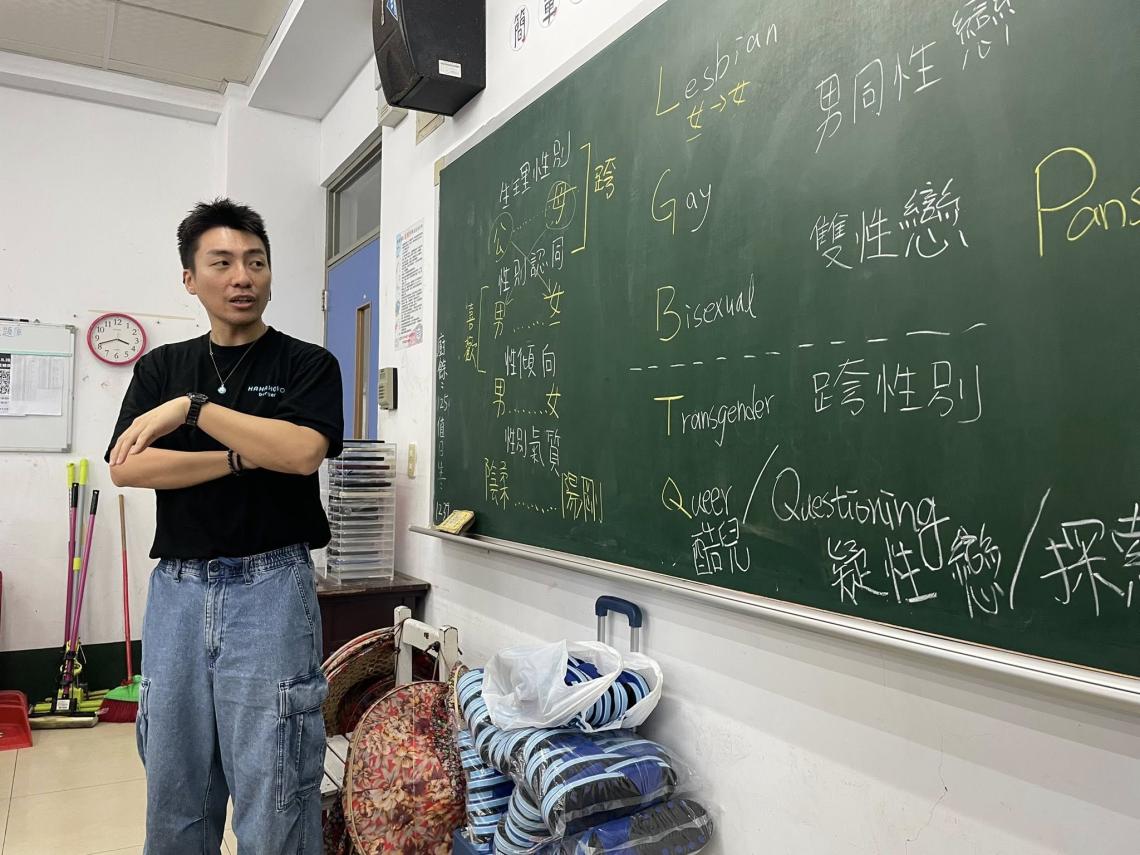 簡 單
生理性別
公……母
跨
性別認同
男……女
喜歡
性傾向
男……女
性別氣質
陰柔……陽剛
Lesbian
女→女
男同性戀
Gay
雙性戀
Pans
Bisexual
Transgender 跨性別
Queer / Questioning
酷兒 疑性戀 / 探索